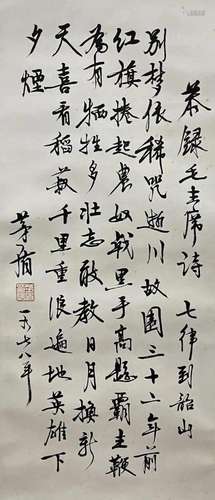 恭錄毛主席詩 七律到韶山
别梦依稀咒逝川故園三十二年前
红旗捲起農奴戟黑手高懸霸主鞭
為有牺牲多壮志敢教日月换新
天喜看稻菽千里重浪遍地英雄下
夕煙
茅盾
一九七八年